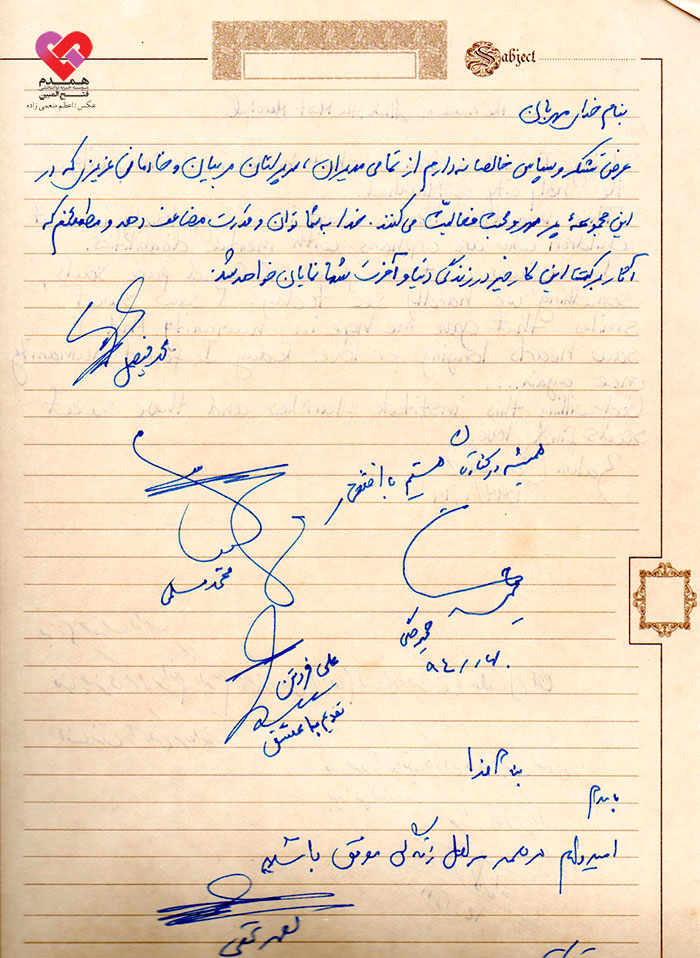 همدم
موسسه خیریه توانبخشی
فتح المبین
عکس: اعظم منعمی زاده
Sabject
بنام خدای مهربان
عرض تشکر و سپاس خالصانه دارم از تمامی مدیران، سرپرستان مربیان و خادمانی عزیزی که در
این مجموعهٔ پر مهر و محبت فعالیت می‌کنند. خدا به شما توان و قدرت مضاعف دهد و مطمئنم که
آثار برکت این کار خیر در زندگی دنیا و آخرت شما نمایان خواهد شد.
محمد فیصل
همیشه در کنارتان هستیم با افتخار
محمد مسلمی
علی فروتن
تقدیم با عشق
بنام خدا
امیدوارم در همه مراحل زندگی موفق باشید